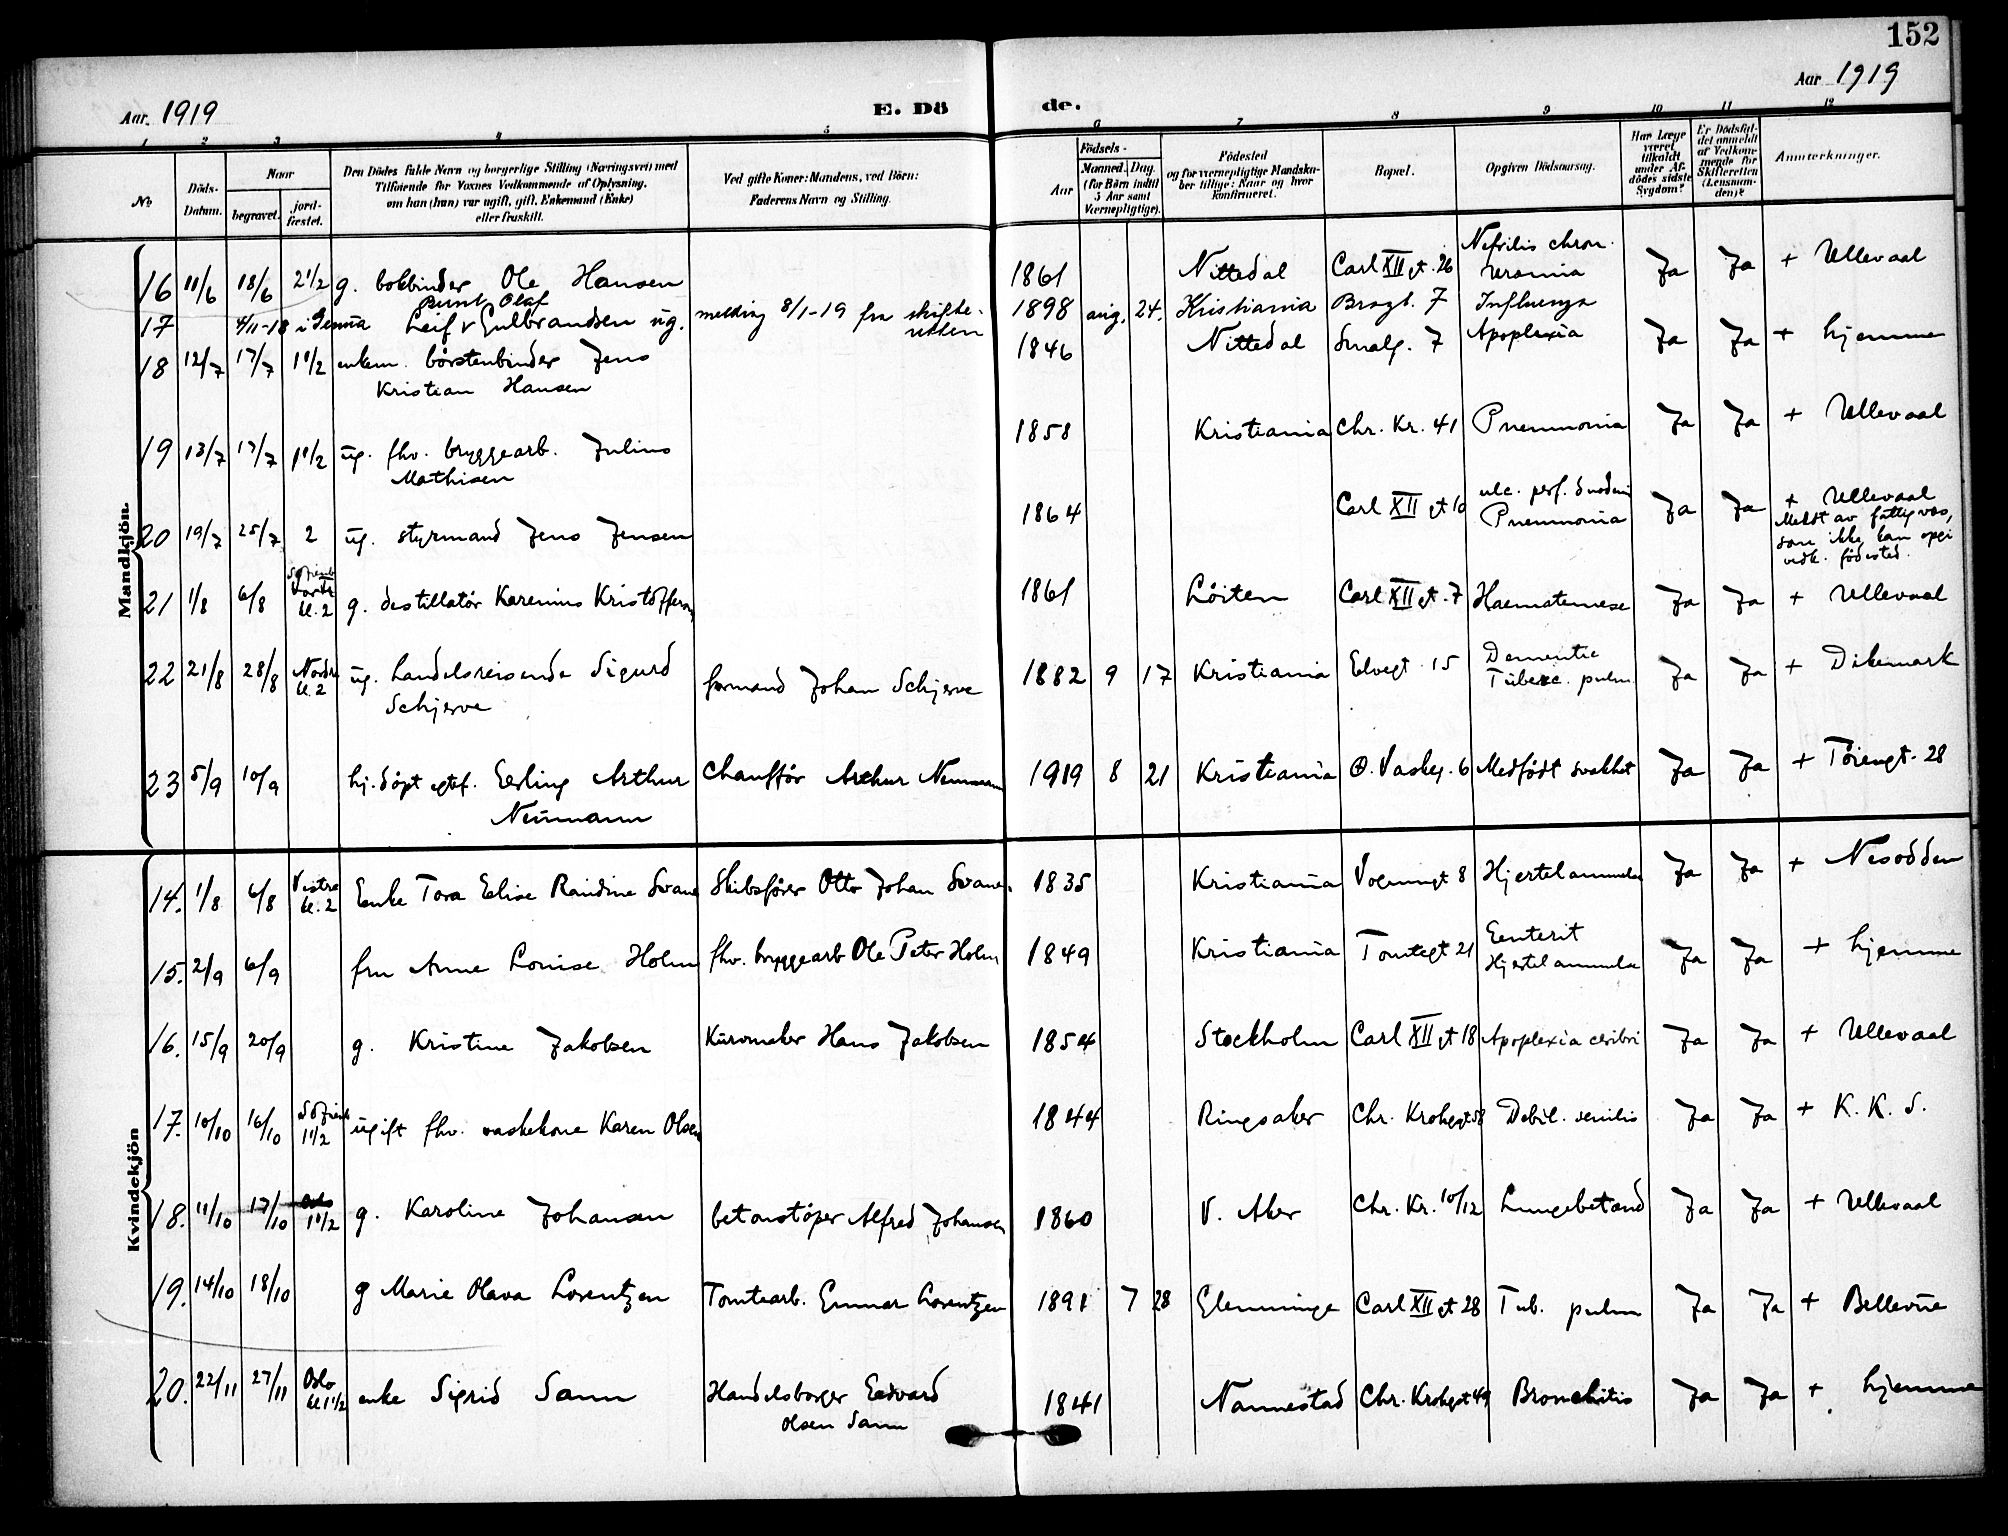 152
Aar. 1919
E. Dö
de.
Aar 1919
1 2 3 4 5 6 7 8 9 10 11 12
No
Döds-Datum.
Naar
begravet.
jord-fæstet.
Den Dödes fulde Navn og borgerlige Stilling (Næringsvei) med
Tilföiende for Voxnes Vedkommende af Oplysning,
om han (hun) var ugift, gift, Enkemand (Enke)
eller fraskilt.
Ved gifte Koner: Mandens, ved Börn:
Faderens Navn og Stilling.
Födsels-
Aar
Maaned. Dag.
(for Börn indtil
5 Aar samt
Værnepligtige).
Födested
og for værnepligtige Mandska-
ber tillige: Naar og hvor
konfirmeret.
Bopæl.
Opgiven Dödsaarsag.
Har Læge
været
tilkaldt
under Af-
dödes sidste
Sygdom?
Er Dödsfal-
det anmeldt
af Vedkom-
mende for
Skifteretten
(Lensman-
den)?
Anmærkninger.
Mandkjön.
16 11/6 18/6 2 1/2 g. bokbinder Ole Hansen 1861 Nittedal Carl XII gt. 26 Nefritis chron. Uramia Ja Ja + Ullevaal
17 4/11-18 i Genua Bernt Olaf Leif v Gulbrandsen ug. melding 8/1-19 fra skifteretten 1898 aug. 24. Kristiania Bragt. 7 Influenza
18 12/7 17/7 1 1/2 enkem. börstenbinder Jens 1846 Nittedal Smalg. 7 Apoplexia Ja Ja + hjemme
Kristian Hansen
19 13/7 17/7 1 1/2 ug. fhv. bryggearb. Julius 1858 Kristiania Chr. Kr. 41 Pneumonia Ja Ja + Ullevaal
Mathisen
20 19/7 25/7 2 ug. styrmand Jens Jensen 1864 Carl XII gt 10 ulc. perf. duodeni Pneumonia Ja Ja + Ullevaal
Meldt av fattigvæs,
som ikke kan opgi
vedk. födested.
21 1/8 6/8 kl. 2 g. destillatör Karenius Kristoffersen 1861 Löiten Carl XII gt. 7 Haematemese Ja Ja + Ullevaal
22 21/8 28/8 Nordre kl. 2 ug. handelsreisende Sigurd formand Johan Schjerve 1882 9 17 Kristiania Eilvegt 15 Dementie Tuberc. pulm Ja Ja + Dikemark
Schjerve
23 5/9 10/9 hj.döpt egtef. Erling Arthur Chaufför Arthur Neumann 1919 8 21 Kristiania O. Vaskeg. 6 Medfödt svakhet Ja Ja + Töiengt. 28
Neumann
Kvindekjön
14. 1/8 6/8 Vestre kl. 2 Enke Tora Elise Randine Svane Skibsförer Otto Johan Svane 1835 Kristiania Voerningt 8 Hjertelammelse Ja Ja + Nesodden
15. 2/9 6/9 fru Anne Louise Holm fhv. bryggearb Ole Peter Holm 1849 Kristiania Tomtegt 21 Enterit Hjertelammelse Ja Ja + hjemme
16. 15/9 20/9 g. Kristine Jakobsen Kurvmaker Hans Jakobsen 1854 Stockholm Carl XII gt 18 Apoplexia ceribri Ja Ja + Ullevaal
17. 10/10 16/10 Sofienb 1 1/2 ugift fhv. vaskekone Karen Olsen 1844 Ringsaker Chr. Krohgsgt 58 Debil. senilis Ja Ja + K. K. S.
18. 11/10 17/10 1 1/2 g. Karoline Johansen betonstöper Alfred Johansen 1860 V. Aker Chr. Kr. 10/12 Lungebetænd Ja Ja + Ullevaal
19. 14/10 18/10 g Marie Olava Lorentzen Tomtearb. Gunnar Lorentzen 1891 7 28 Glemminge Carl XII gt 28 Tub. pulm Ja Ja + Bellevue
20. 22/11 27/11 Oslo kl 1 1/2 enke Sigrid Sann Handelsborger Edvard 1841 Nannestad Chr. Krohgsgt 49 Bronchitis Ja Ja + hjemme
Olsen Sann